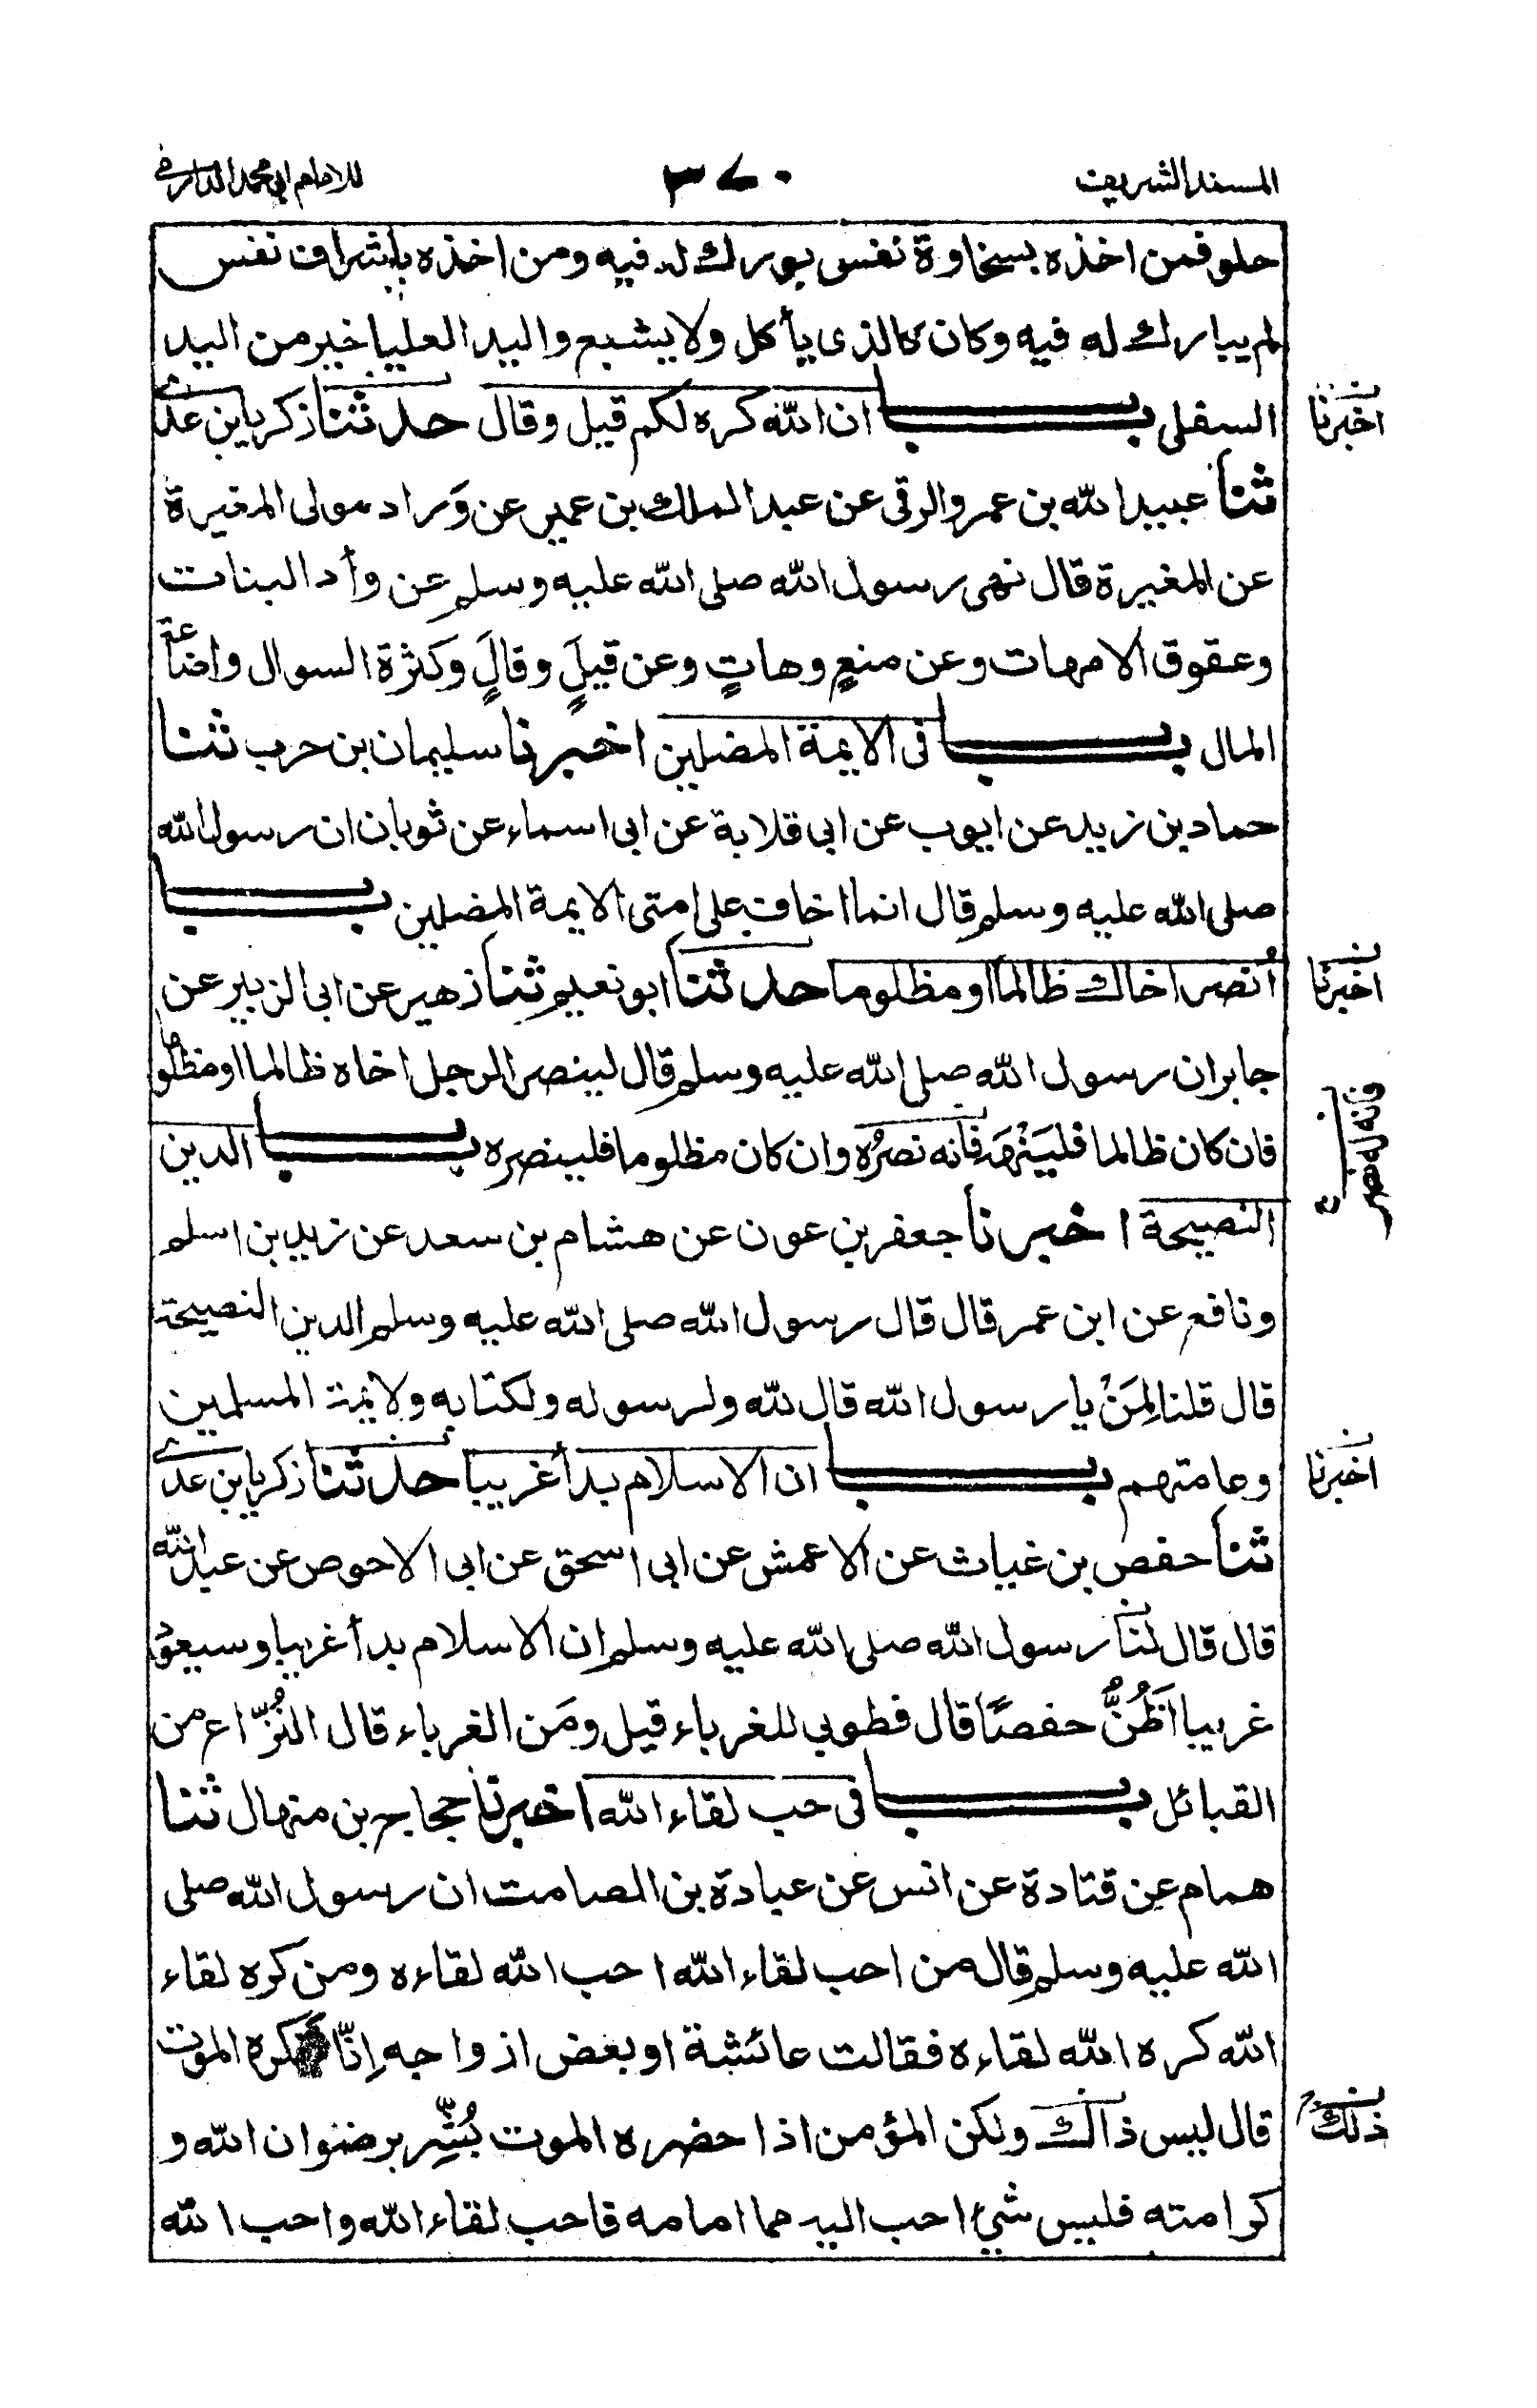 المسند الشريف ٣٧٠ للامام ابي محمد الدارمي
حلو فمن اخذه بسخاوة نفس بورك له فيه ومن اخذه باشراف نفس
لم يبارك له فيه وكان كالذي يأكل ولا يشبع واليد العليا خير من اليد
السفلى باب ان الله كره لكم قيل وقال حدثنا زكريا بن عدي
اخبرنا
ثنا عبيد الله بن عمرو الرقي عن عبد الملك بن عمير عن وَراد مولى المغيرة
عن المغيرة قال نهى رسول الله صلى الله عليه وسلم عن وأد البنات
وعقوق الامهات وعن منعٍ وهاتٍ وعن قيلَ وقالَ وكثرة السوال واضاعة
المال باب في الايمة المضلين اخبرنا سليمان بن حرب ثنا
حماد بن زيد عن ايوب عن ابي قلابة عن ابي اسماء عن ثوبان ان رسول الله
صلى الله عليه وسلم قال انما اخاف على امتي الايمة المضلين باب
أُنصر اخاك ظالمًا او مظلوما حدثنا ابو نعيم ثنا زهير عن ابي الزبير عن
اخبرنا
جابر ان رسول الله صلى الله عليه وسلم قال لينصر الرجل اخاه ظالما او مظلوما
فان كان ظالما فليَنْهَه فانه نصرُه وان كان مظلوما فلينصره باب الدين
فانه له نصر
النصيحة اخبرنا جعفر بن عون عن هشام بن سعد عن زيد بن اسلم
ونافع عن ابن عمر قال قال رسول الله صلى الله عليه وسلم الدين النصيحة
قال قلنا لِمَنْ يا رسول الله قال لله ولرسوله ولكتابه ولايمة المسلمين
وعامتهم باب ان الاسلام بدأ غريبا حدثنا زكريا بن عدي
اخبرنا
ثنا حفص بن غياث عن الاعمش عن ابي اسحق عن ابي الاحوص عن عبد الله
قال قال لنا رسول الله صلى الله عليه وسلم ان الاسلام بدأ غريبا وسيعود
غريبا اَظُنُّ حفصًا قال فطوبى للغرباء قيل ومَن الغرباء قال النُزّاع من
القبائل باب في حب لقاء الله اخبرنا حجاج بن منهال ثنا
همام عن قتادة عن انس عن عبادة بن الصامت ان رسول الله صلى
الله عليه وسلم قال من احب لقاء الله احب الله لقاءه ومن كره لقاء
الله كره الله لقاءه فقالت عائشة او بعض ازواجه اِنّا لنكره الموت
قال ليس ذاك ولكن المؤمن اذا حضره الموت بُشِّر برضوان الله و
ذلك
كرامته فليس شيٌ احب اليه مما امامه فاحب لقاء الله واحب الله